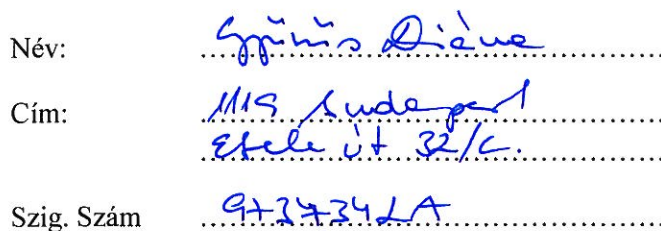 Név: Gyűrűs Diána
Cím: 1119 Budapest
Etele út 32/c.
Szig. Szám 973734LA